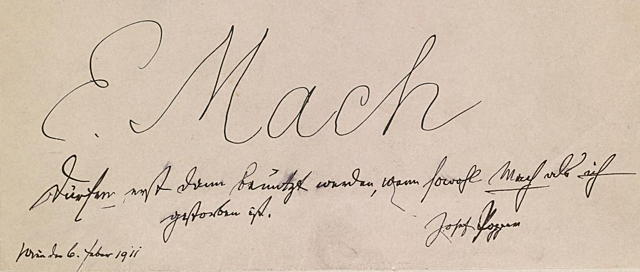 E. Mach
Dürfen erst dann benützt werden, wenn sowohl Mach als ich
gestorben ist.
Josef Popper
Wien den 6. Feber 1911